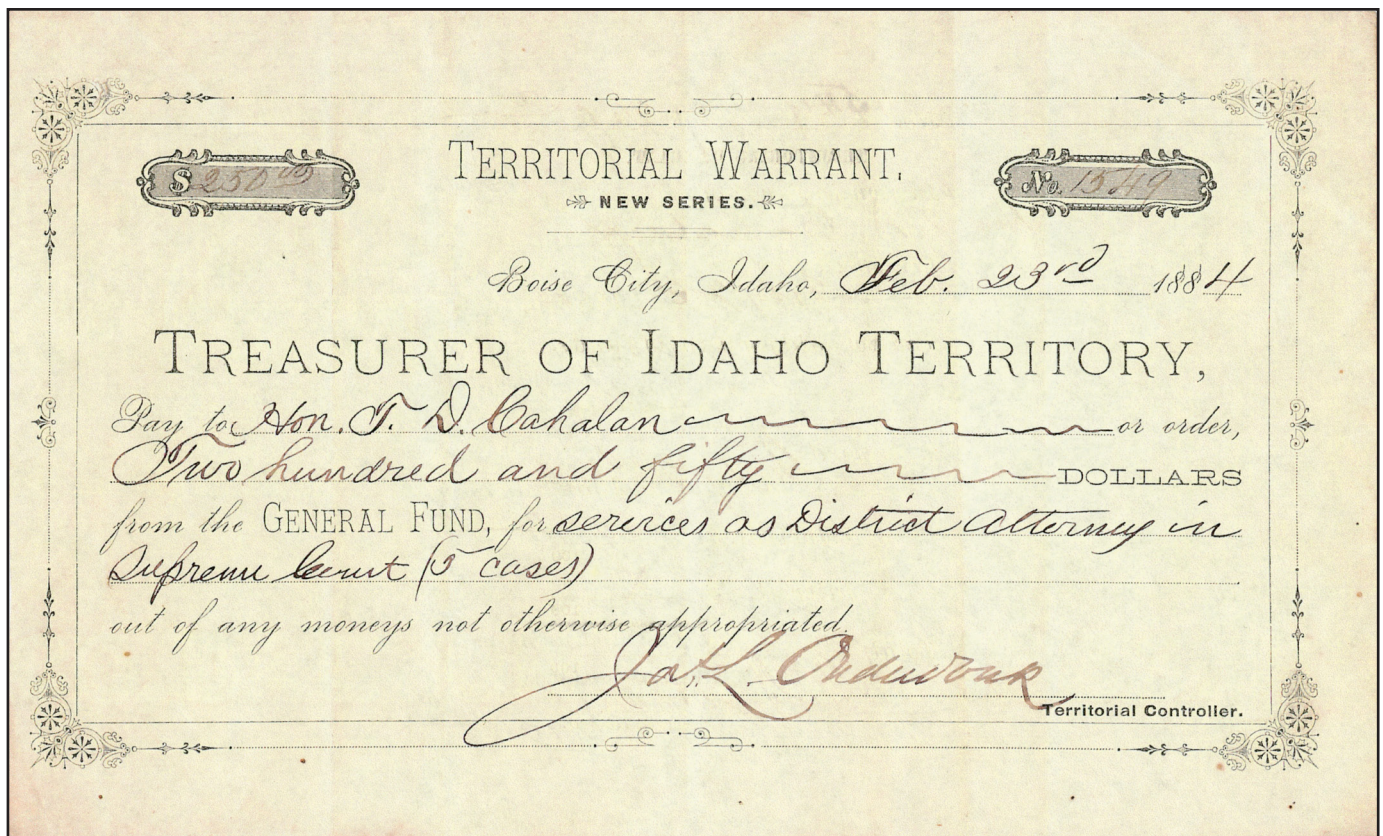 $ 250 00
TERRITORIAL WARRANT.
No. 1549
NEW SERIES.
Boise City, Idaho, Feb. 23rd 1884
TREASURER OF IDAHO TERRITORY,
Pay to Hon. T. D. Cahalan or order,
Two hundred and fifty DOLLARS
from the GENERAL FUND, for services as District Attorney in
Supreme Court (5 cases)
out of any moneys not otherwise appropriated.
Jas. L. Onderdonk
Territorial Controller.